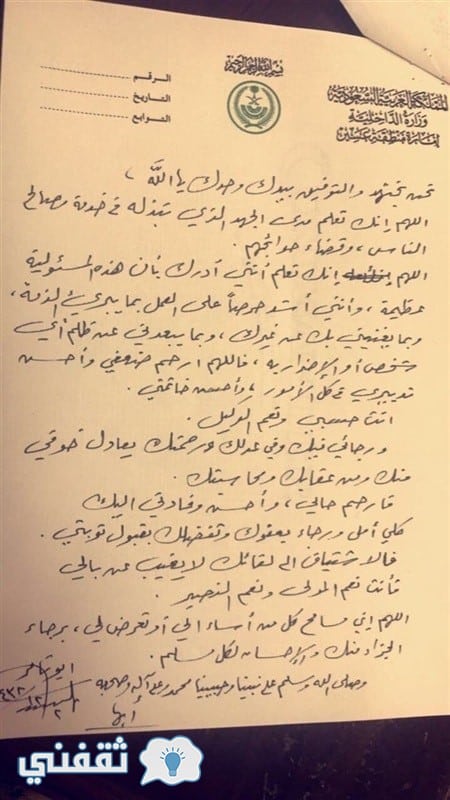 بسم الله الرحمن الرحيم
المملكة العربية السعودية
وزارة الداخلية
إمارة منطقة عسير
الرقم
التاريخ
التوابع
نحن نجتهد والتوفيق بيدك وحدك يا الله ،
اللهم إنك تعلم مدى الجهد الذي نبذله في خدمة مصالح
الناس ، وقضاء حوائجهم .
اللهم إنك تعلم أنني أدرك بأن هذه المسئولية
عظيمة ، وأنني أشد حرصاً على العمل بما يبرئ الذمة ،
وبما يغنيني بك عن غيرك ، وبما يبعدني عن ظلم أي
شخص أو الإضرار به ، فاللهم ارحم ضعفي وأحسن
تدبيري في كل الأمور ، وأحسن خاتمتي .
أنت حسبي ونعم الوكيل .
ورجائي فيك وفي عدلك ورحمتك يعادل خوفي
منك ومن عقابك ومحاسبتك .
فارحم حالي ، وأحسن وفادتي إليك
فكلي أمل ورجاء بعفوك وتفضلك بقبول توبتي .
فالاشتياق إلى لقائك لا يغيب عن بالي
فأنت نعم المولى ونعم النصير .
اللهم إني مسامح كل من أساء إلي أو تعرض لي ، برجاء
الجزاء منك والإحسان لكل مسلم .
وصلى الله وسلم على نبينا وحبيبنا محمد وعلى آله وصحبه
أبها
ثقفني